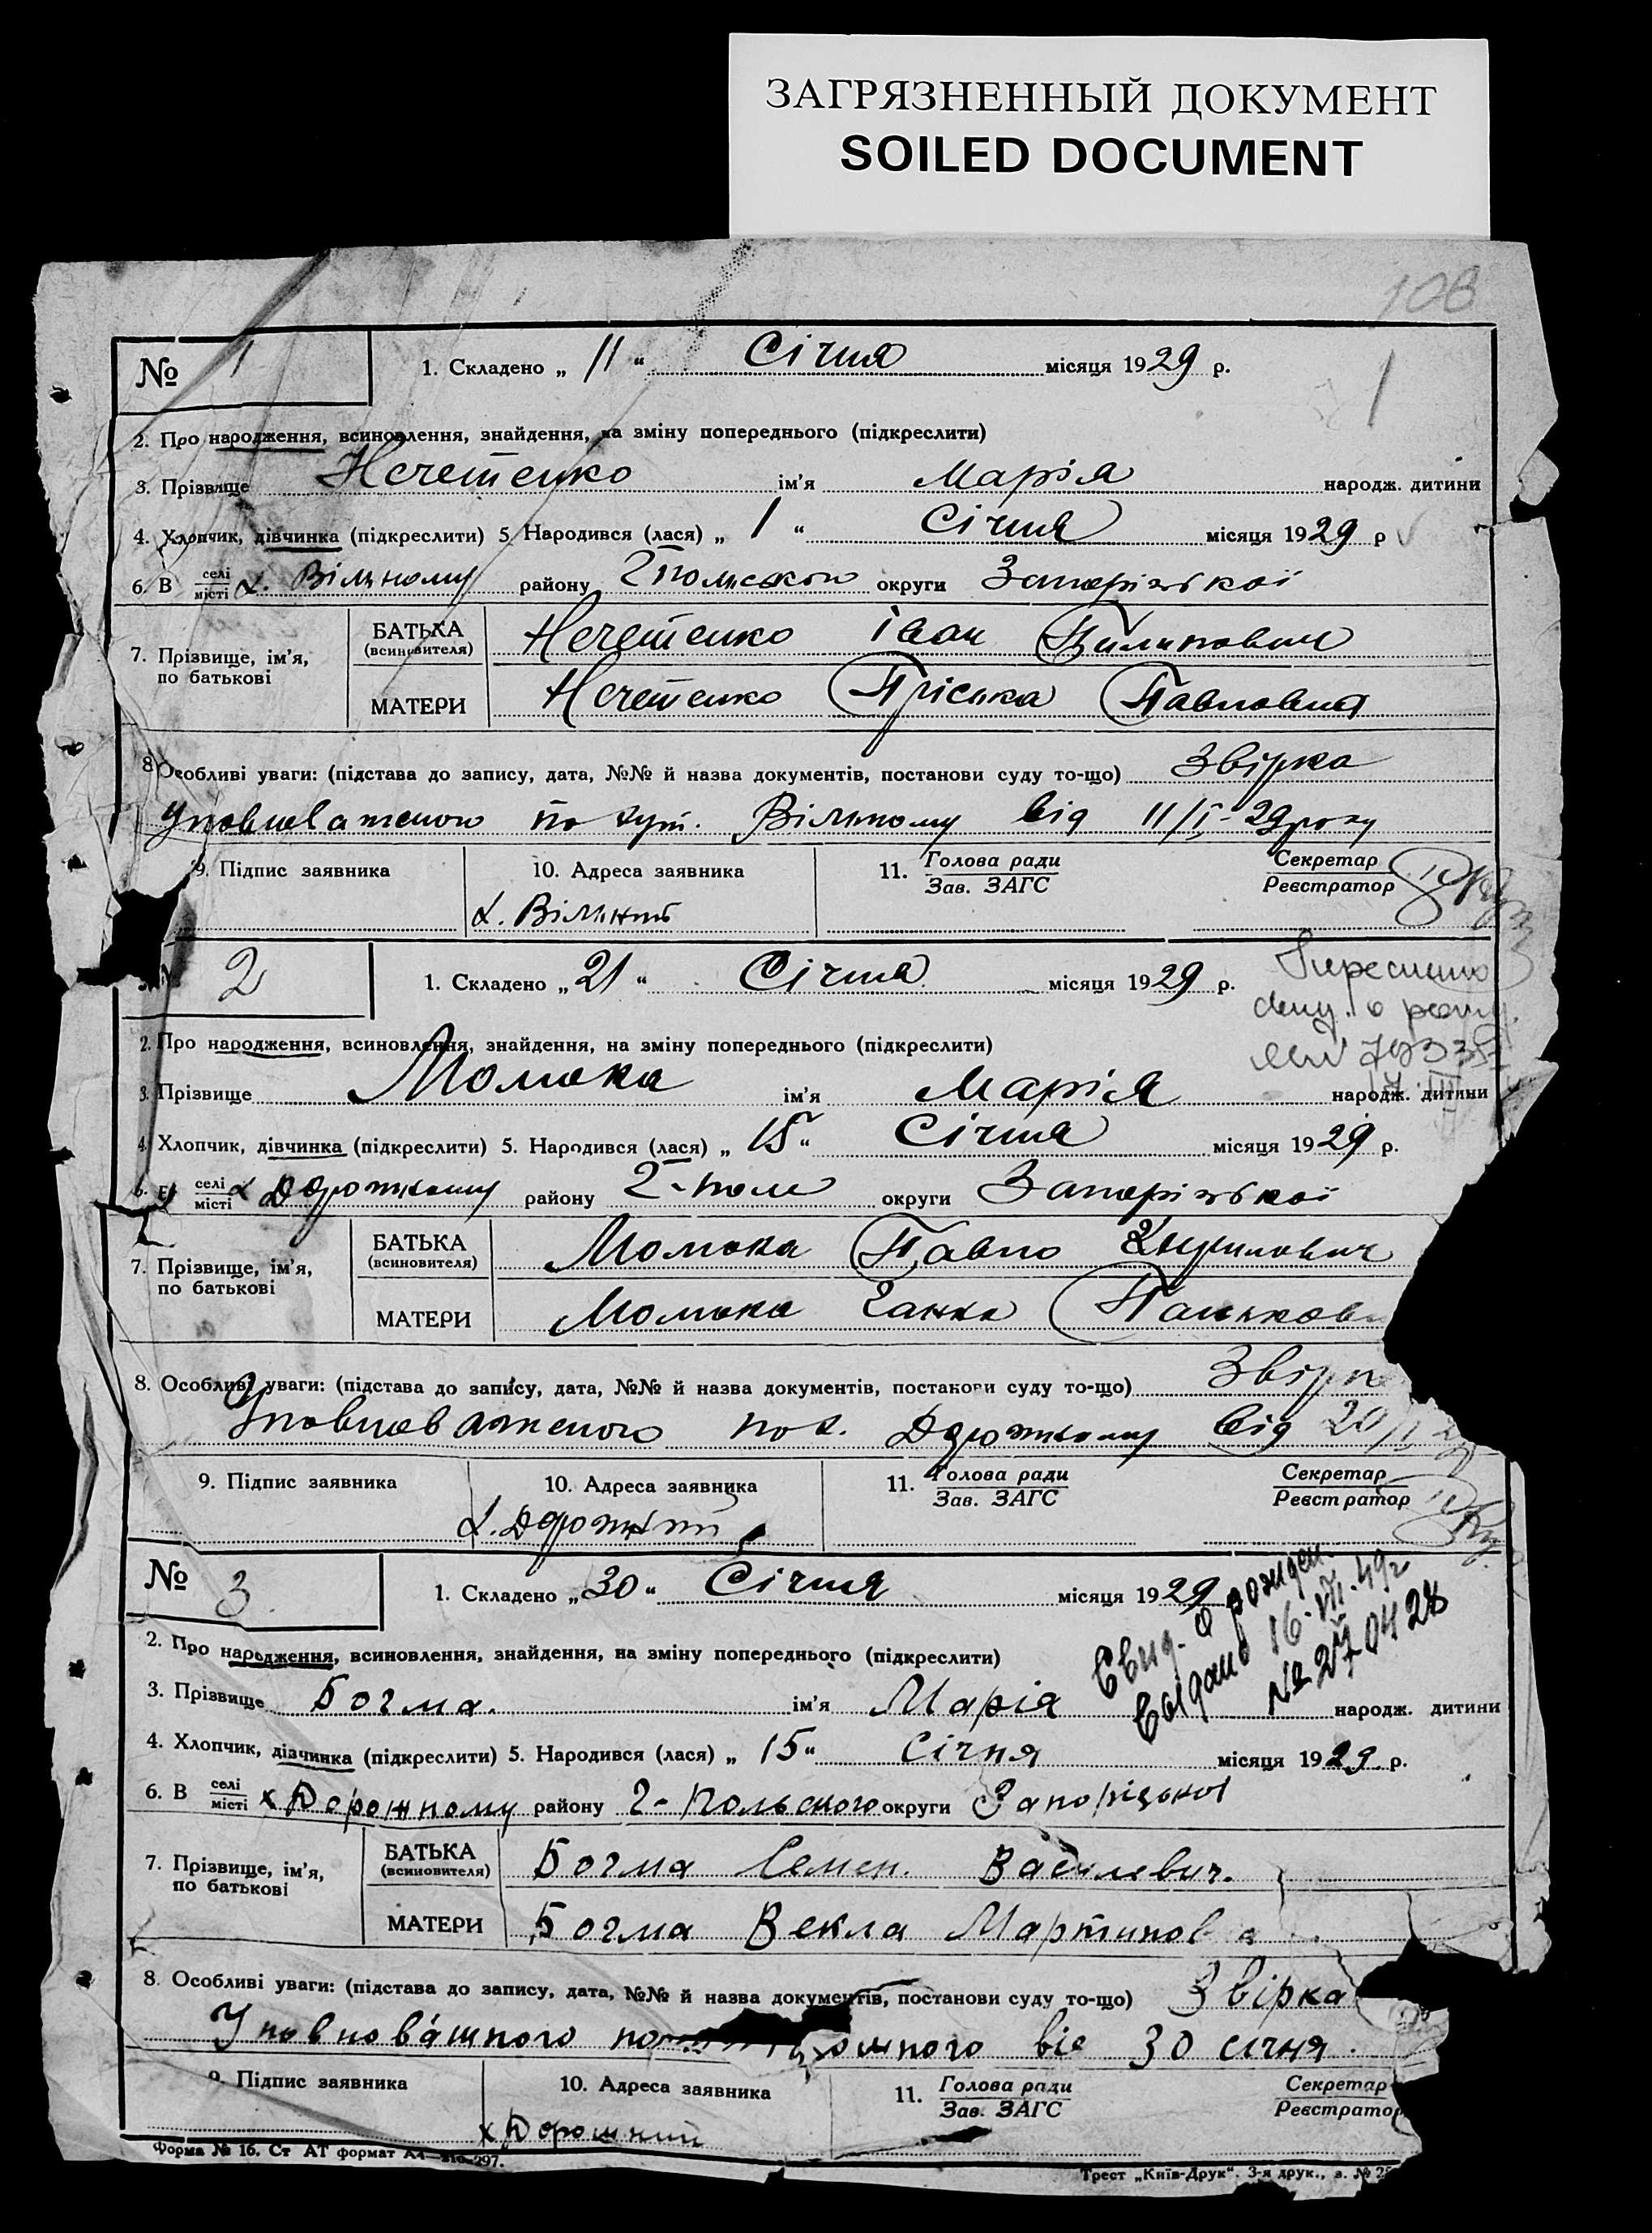 ЗАГРЯЗНЕННЫЙ ДОКУМЕНТ
SOILED DOCUMENT
108
№ 1
1. Складено „ 11 “ Січня місяця 1929 р.
1
2. Про народження, всиновлення, знайдення, на зміну попереднього (підкреслити)
3. Прізвище Нечетенко ім'я Марія народж. дитини
4. Хлопчик, дівчинка (підкреслити) 5. Народився (лася) „ 1 “ Січня місяця 1929 р
6. В селі місті х. Вільному району 2 Польского округи Запоріжької
7. Прізвище, ім'я, по батькові
БАТЬКА (всиновителя) Нечетенко Іван Пилипович
МАТЕРИ Нечетенко Пріська Павловна
8. Особливі уваги: (підстава до запису, дата, №№ й назва документів, постанови суду то-що) Звірка
Уповноваженого по хут. Вільному від 11/I-29 року
9. Підпис заявника 10. Адреса заявника 11. Голова ради Зав. ЗАГС Секретар Реєстратор
х. Вільний
2
1. Складено „ 21 “ Січня місяця 1929 р.
2. Про народження, всиновлення, знайдення, на зміну попереднього (підкреслити)
3. Прізвище Момока ім'я Марія народж. дитини
4. Хлопчик, дівчинка (підкреслити) 5. Народився (лася) „ 15 “ Січня місяця 1929 р.
6. В селі місті х Дорожному району 2-поле округи Запоріжької
7. Прізвище, ім'я, по батькові
БАТЬКА (всиновителя) Момока Павло
МАТЕРИ Момока Ганна Паньков
8. Особливі уваги: (підстава до запису, дата, №№ й назва документів, постанови суду то-що) Звірк
Уповноваженого по х. Дорожному від 20/I
9. Підпис заявника 10. Адреса заявника 11. Голова ради Зав. ЗАГС Секретар Реєстратор
х. Дорожний
№ 3
1. Складено „ 30 “ Січня місяця 1929
Свид. о рожден.
выдано 16.VII.49г
2. Про народження, всиновлення, знайдення, на зміну попереднього (підкреслити)
3. Прізвище Богма. ім'я Марія народж. дитини
4. Хлопчик, дівчинка (підкреслити) 5. Народився (лася) „ 15 “ Січня місяця 1929 р.
6. В селі місті х Дорожному району 2-Польского округи Запоріцької
7. Прізвище, ім'я, по батькові
БАТЬКА (всиновителя) Богма Семен. Василевич.
МАТЕРИ Богма Векла Мартинов а
8. Особливі уваги: (підстава до запису, дата, №№ й назва документів, постанови суду то-що) Звірка
Уповновашного по ошного віс 30 січня.
9. Підпис заявника 10. Адреса заявника 11. Голова ради Зав. ЗАГС Секретар Реєстратор
х Дорошний
Форма № 16. Ст АТ формат А4—210-297.
Трест „Київ-Друк“. 3-я друк., з. №